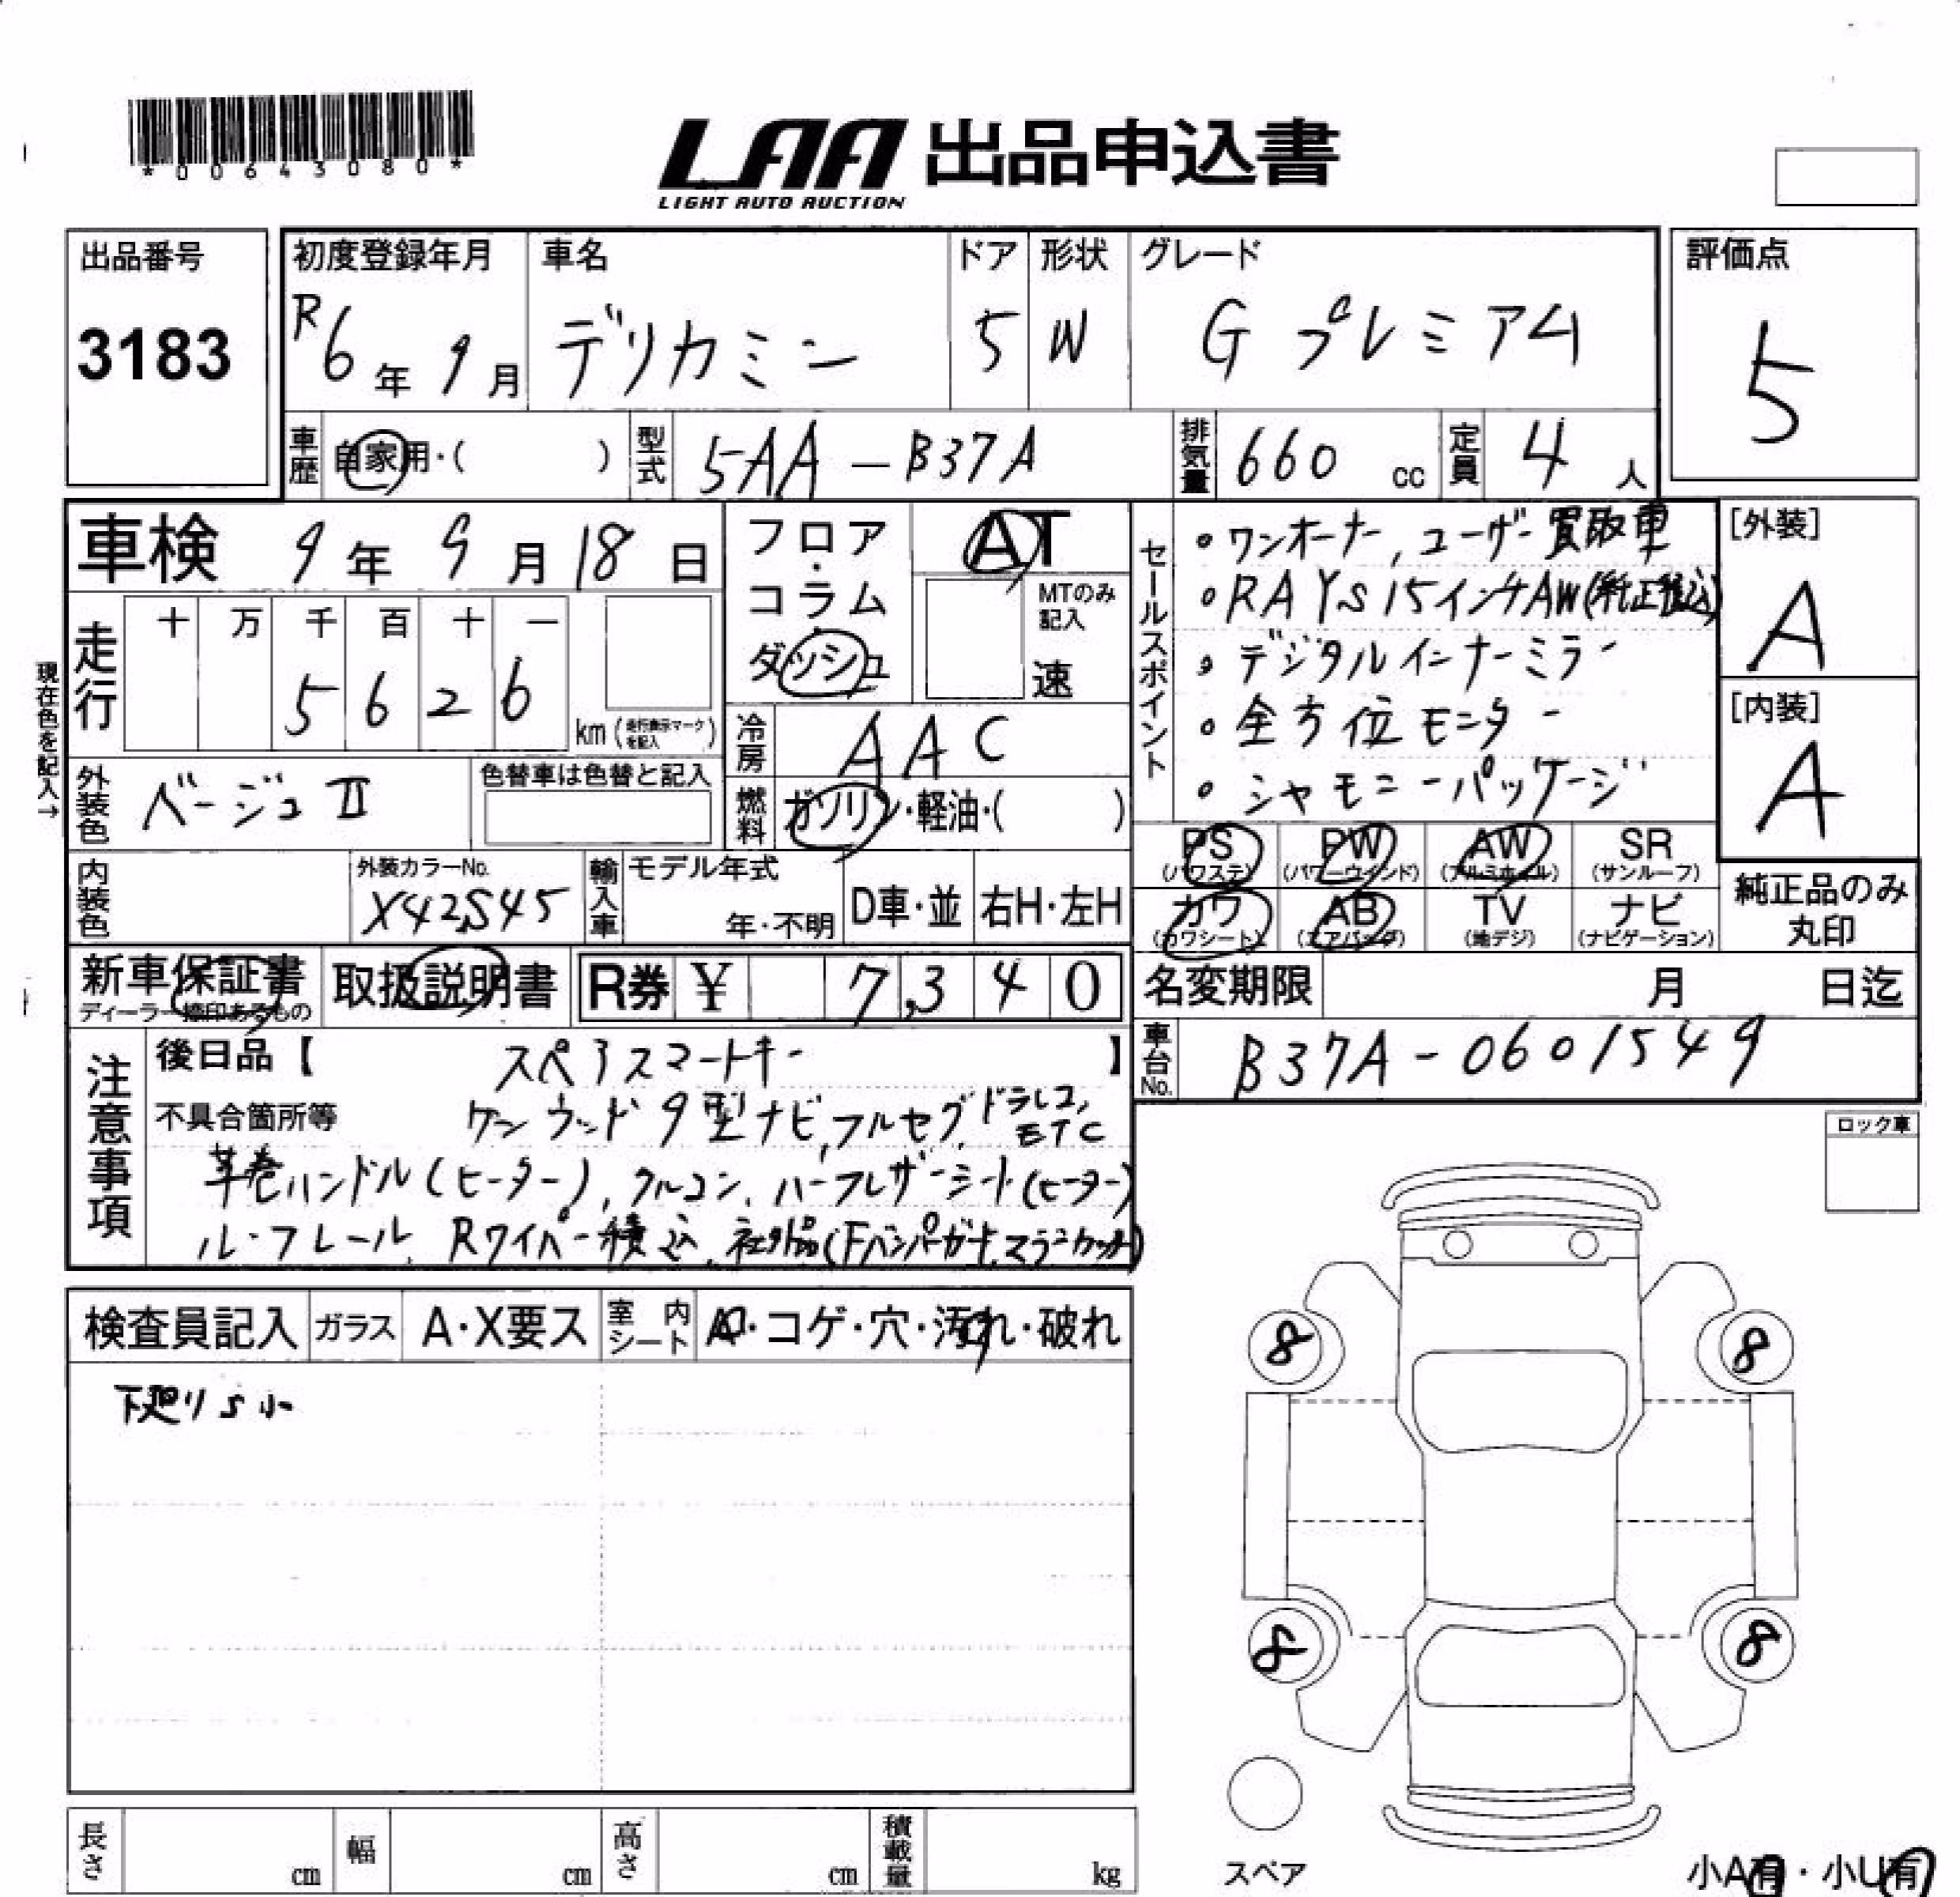 *00643080*
LAA 出品申込書
LIGHT AUTO AUCTION
出品番号
3183
初度登録年月
R6年9月
車名
デリカミニ
ドア
5
形状
W
グレード
G プレミアム
評価点
5
車歴
自家用・( )
型式
5AA-B37A
排気量
660 cc
定員
4人
車検 9年9月18日
走行
十 万 千 百 十 一
5 6 2 6
km(走行表示マークを記入)
現在色を記入→
フロア・コラム・ダッシュ
AT
MTのみ記入
速
冷房
AAC
燃料
ガソリン・軽油・( )
セールスポイント
・ワンオーナー,ユーザー買取車
・RAYS 15インチAW(純正積込)
・デジタルインナーミラー
・全方位モニター
・シャモニーパッケージ
[外装]
A
[内装]
A
外装色
ベージュII
色替車は色替と記入
内装色
外装カラーNo.
X42,S45
輸入車
モデル年式
年・不明
D車・並
右H・左H
PS (パワステ)
PW (パワーウインド)
AW (アルミホイル)
SR (サンルーフ)
カワ (カワシート)
AB (エアバッグ)
TV (地デジ)
ナビ (ナビゲーション)
純正品のみ丸印
新車保証書
ディーラー捺印あるもの
取扱説明書
R券 ¥ 7,340
名変期限 月 日迄
車台No.
B37A-0601549
注意事項
後日品【 スペアスマートキー 】
不具合箇所等 ケンウッド9型ナビ,フルセグ,ドラレコ,ETC
革巻ハンドル(ヒーター),クルコン,ハーフレザーシート(ヒーター)
ルーフレール,Rワイパー積込,社外品(Fバンパーガード,マッドフラップ)
ロック車
検査員記入
ガラス
A・X要ス
室内シート
A・コゲ・穴・汚れ・破れ
下廻りS小
8
8
8
8
スペア
小A有・小U有
長さ cm
幅 cm
高さ cm
積載量 kg